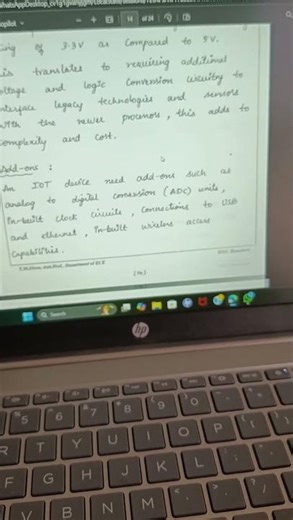 14 of 24
ing of 3.3V as compared to 5V.
is translates to requiring additional
oltage and logic conversion circuitry to
interface legacy technologies and sensors
with the newer processors, this adds to
complexity and cost.
Add-ons :
An IOT device need add-ons such as
analog to digital conversion (ADC) units,
in-built clock circuits, connections to USB
and ethernet, in-built wireless access
capabilities.
Department of ECE
Search
hp
5 6 7 8 9 0
R T Y U I O P
F G H J K L
V B N M